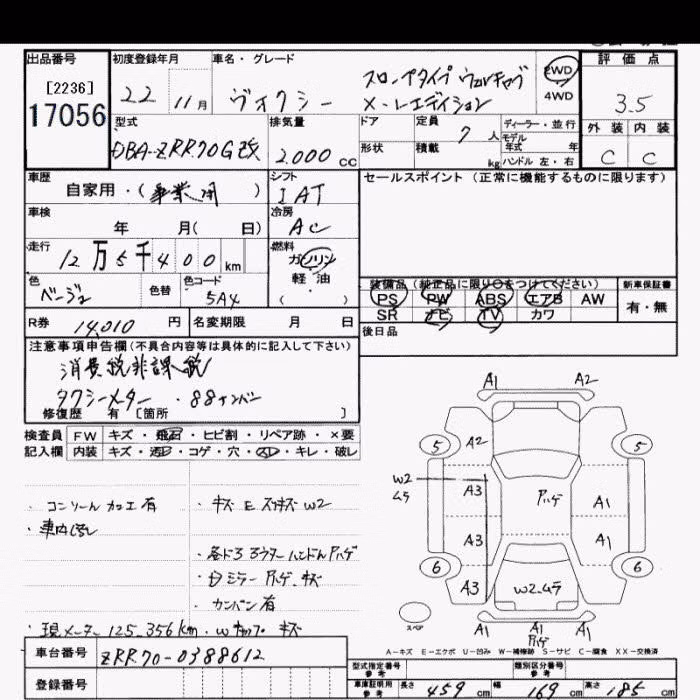 出品番号
[2236]
17056
初度登録年月
22年 11月
車名・グレード
ヴォクシー
スロープタイプ ウェルキャブ
X-Lエディション
2WD
4WD
評価点
3.5
外装 内装
C C
型式
DBA-ZRR70G改
排気量
2.000 cc
ドア
形状
定員
7人
積載
kg
ディーラー・並行
モデル
年式 年
ハンドル 左・右
車歴
自家用・(事業用)
シフト
IAT
セールスポイント(正常に機能するものに限ります)
車検
年 月( 日)
冷房
AC
走行
12万5千400km
燃料
ガソリン
軽油
( )
色
ベージュ
色替
色コード
5A4
装備品(純正品に限り○をつけてください)
PS PW ABS エアB AW
SR ナビ TV カワ
新車保証書
有・無
R券 14,010円
名変期限 月 日
後日品
注意事項申告欄(不具合内容等は具体的に記入して下さい)
消費税非課税
タクシーメーター ・88ナンバー
修復歴 有 [箇所 ]
検査員 FW キズ・飛石・ヒビ割・リペア跡・×要
記入欄 内装 キズ・汚れ・コゲ・穴・スレ・キレ・破レ
・コンソール加工有
・キズ E スリキズ W2
・各ドア アウターハンドルPハゲ
・Dミラー Pハゲ、キズ
・カンバン有
・現メーター 125,356km
車台番号 ZRR70-0388612
登録番号
A1 A2
5 A2 5
W2
ムラ
A3 Pハゲ A1
A3 A1
6 A3 W2ムラ 6
スペア
A1 A1 A1
Pハゲ
A-キズ E-エクボ U-凹み W-補修跡 S-サビ C-腐食 XX-交換済
型式指定番号
参考
類別区分番号
参考
車庫証明用
参考
長さ 459cm 幅 169cm 高さ 185cm